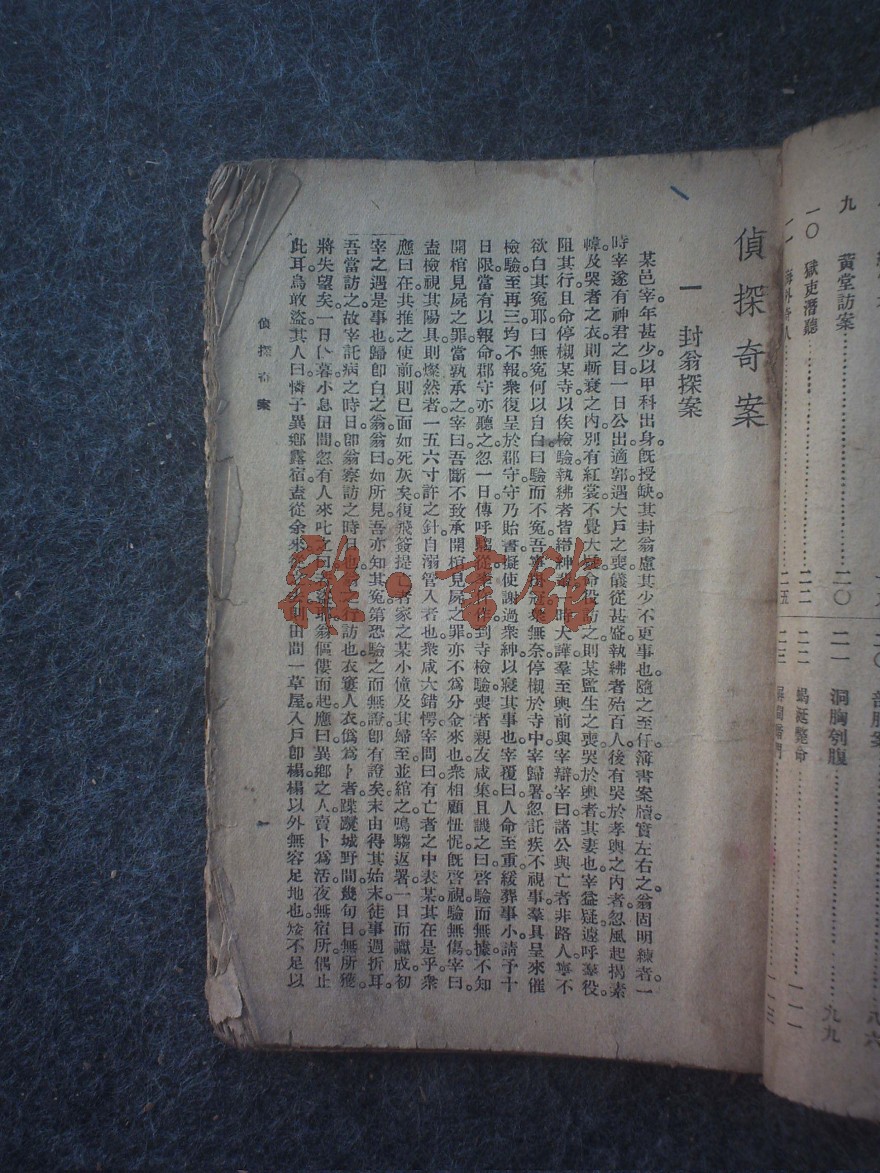 九　黃堂訪案…………二〇
一〇　獄吏潛聽…………二二
二一　洞胸刳腹…………九九
二二　蝎蜓斃命…………一一一
偵探奇案
一　封翁探案
某邑宰年甚少以甲科出身旣授缺其封翁慮其少不更事也隨之至任簿書案牘實左右之翁固明練者一
時宰遂有神君之目一日公出適郭遇大戶之喪儀從甚盛執紼者殆百人後有哭於孝輿之內者忽風起揭素
幃及哭者之衣則斬衰之內別有紅裳不覺大疑命役訪之則某監生之喪哭於輿者其妻也宰益疑遽呼羣役
阻其行且命停櫬某寺以俟檢驗執紼者皆縉紳
時大譁羣至輿前與宰辯宰曰諸公與亡者非路人寧不
欲白其冤耶曰無冤何以自白曰驗而不冤吾寧
衆無奈停櫬於寺中宰歸署忽託疾不視事羣具呈來催
檢驗至再三均不報衆復呈於郡守守乃貽書擬使謝過衆紳以寢其事也宰覆曰人命至重緩葬事小請予十
日限當有以報命郡守亦聽之忽一日傳呼騶從
到寺檢驗喪者親友咸集且譏之曰啓驗而無據不知
開棺見屍之罪當孰承之宰曰吾斷不致承開棺見屍之罪亦不爲分金來也衆相顧忸怩旣啓視驗無傷宰曰
盍檢視其陽具則燦然者一五六寸許之針自溺管入者也衆咸大錯愕宰問曰有亡者之中表某其在是乎衆
應曰在共推之使前則已面如死灰矣復飛簽提
者家之某小僮及其婦至並綰之鳴騶返署一日而讞成初
宰之遇是事也歸卽白之翁翁曰如所見吾亦知其冤第恐驗之而無證卽有證矣末由得其始末徒事週折耳
吾當訪之故宰託病之時日卽翁察訪之時日也
訪也衣窶人衣僞爲卜者蹀躞城野間幾旬日無所獲
將失望矣一日日暮小息田間忽有人來叱之曰
盜耶翁傴僂而起應曰異鄉之人賣卜爲活夜無宿所偶止
此耳烏敢盜其人曰憐子異鄉露宿盍從余來
則田間一草屋入戶卽榻榻以外無容足地也
不足以
偵探奇案
一
雅·書館